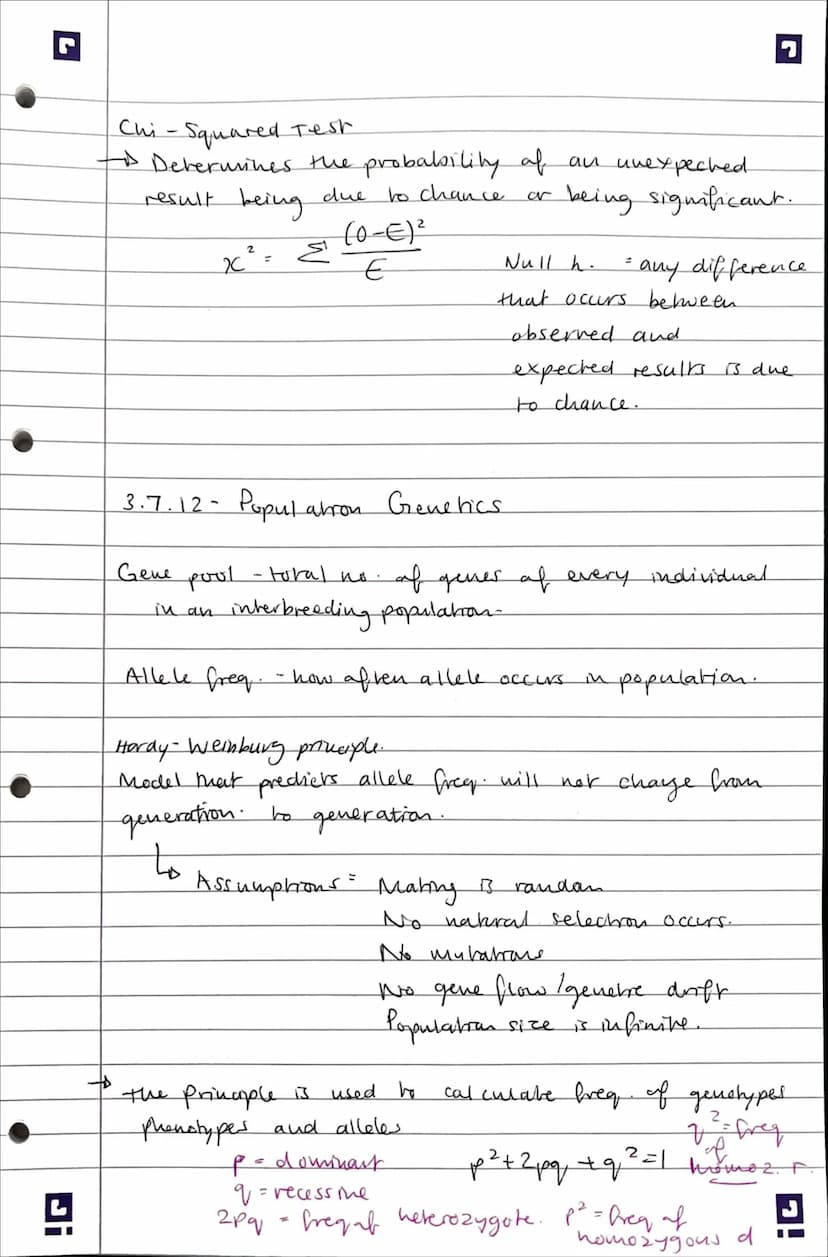 Chi-Squared Test
→ Determines the probability of an unexpected
result being due to chance or being significant.
x² = Σ (O-E)² / E
Null h. = any difference
that occurs between
observed and
expected results is due
to chance.
3.7.12 - Population Genetics
Gene pool - total no. of genes of every individual
in an interbreeding population-
Allele freq. - how often allele occurs in population.
Hardy-Weinburg principle.
Model that predicts allele freq. will not change from
generation. to generation.
↳ Assumptions = Mating is random
No natural selection occurs.
No mutations
No gene flow/genetic drift
Population size is infinite.
→ the principle is used to calculate freq. of genotypes
phenotypes and alleles
q² = freq of homoz. r.
p = dominant
p²+2pq+q²=1
q = recessive
2pq = freq of heterozygote.
p² = freq of
homozygous d